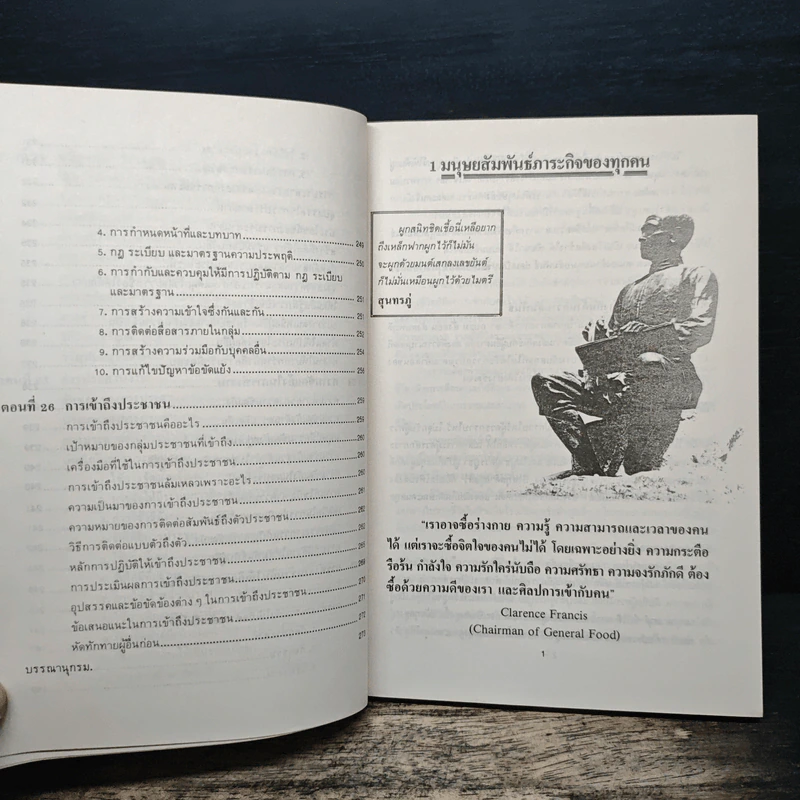 4. การกำหนดหน้าที่และบทบาท 249
5. กฎ ระเบียบ และมาตรฐานความประพฤติ 250
6. การกำกับและควบคุมให้มีการปฏิบัติตาม กฎ ระเบียบ
และมาตรฐาน 251
7. การสร้างความเข้าใจซึ่งกันและกัน 251
8. การติดต่อสื่อสารภายในกลุ่ม 252
9. การสร้างความร่วมมือกับบุคคลอื่น 254
10. การแก้ไขปัญหาข้อขัดแย้ง 256
ตอนที่ 26 การเข้าถึงประชาชน 259
การเข้าถึงประชาชนคืออะไร 259
เป้าหมายของกลุ่มประชาชนที่เข้าถึง 260
เครื่องมือที่ใช้ในการเข้าถึงประชาชน 260
การเข้าถึงประชาชนล้มเหลวเพราะอะไร 260
ความเป็นมาของการเข้าถึงประชาชน 261
ความหมายของการติดต่อสัมพันธ์ถึงตัวประชาชน 262
วิธีการติดต่อแบบตัวถึงตัว 263
หลักการปฏิบัติให้เข้าถึงประชาชน 265
การประเมินผลการเข้าถึงประชาชน 270
อุปสรรคและข้อขัดข้องต่าง ๆ ในการเข้าถึงประชาชน 271
ข้อเสนอแนะในการเข้าถึงประชาชน 272
หัดทักทายผู้อื่นก่อน 273
บรรณานุกรม.
1 มนุษยสัมพันธ์ภาระกิจของทุกคน
ผูกสนิทชิดเชื้อนี่เหลือยาก
ถึงเหล็กฟากผูกไว้ก็ไม่มั่น
จะผูกด้วยมนต์เสกลงเลขยันต์
ก็ไม่มั่นเหมือนผูกไว้ด้วยไมตรี
สุนทรภู่
"เราอาจซื้อร่างกาย ความรู้ ความสามารถและเวลาของคน
ได้ แต่เราจะซื้อจิตใจของคนไม่ได้ โดยเฉพาะอย่างยิ่ง ความกระตือ
รือร้น กำลังใจ ความรักใคร่นับถือ ความศรัทธา ความจงรักภักดี ต้อง
ซื้อด้วยความดีของเรา และศิลปการเข้ากับคน"
Clarence Francis
(Chairman of General Food)
1